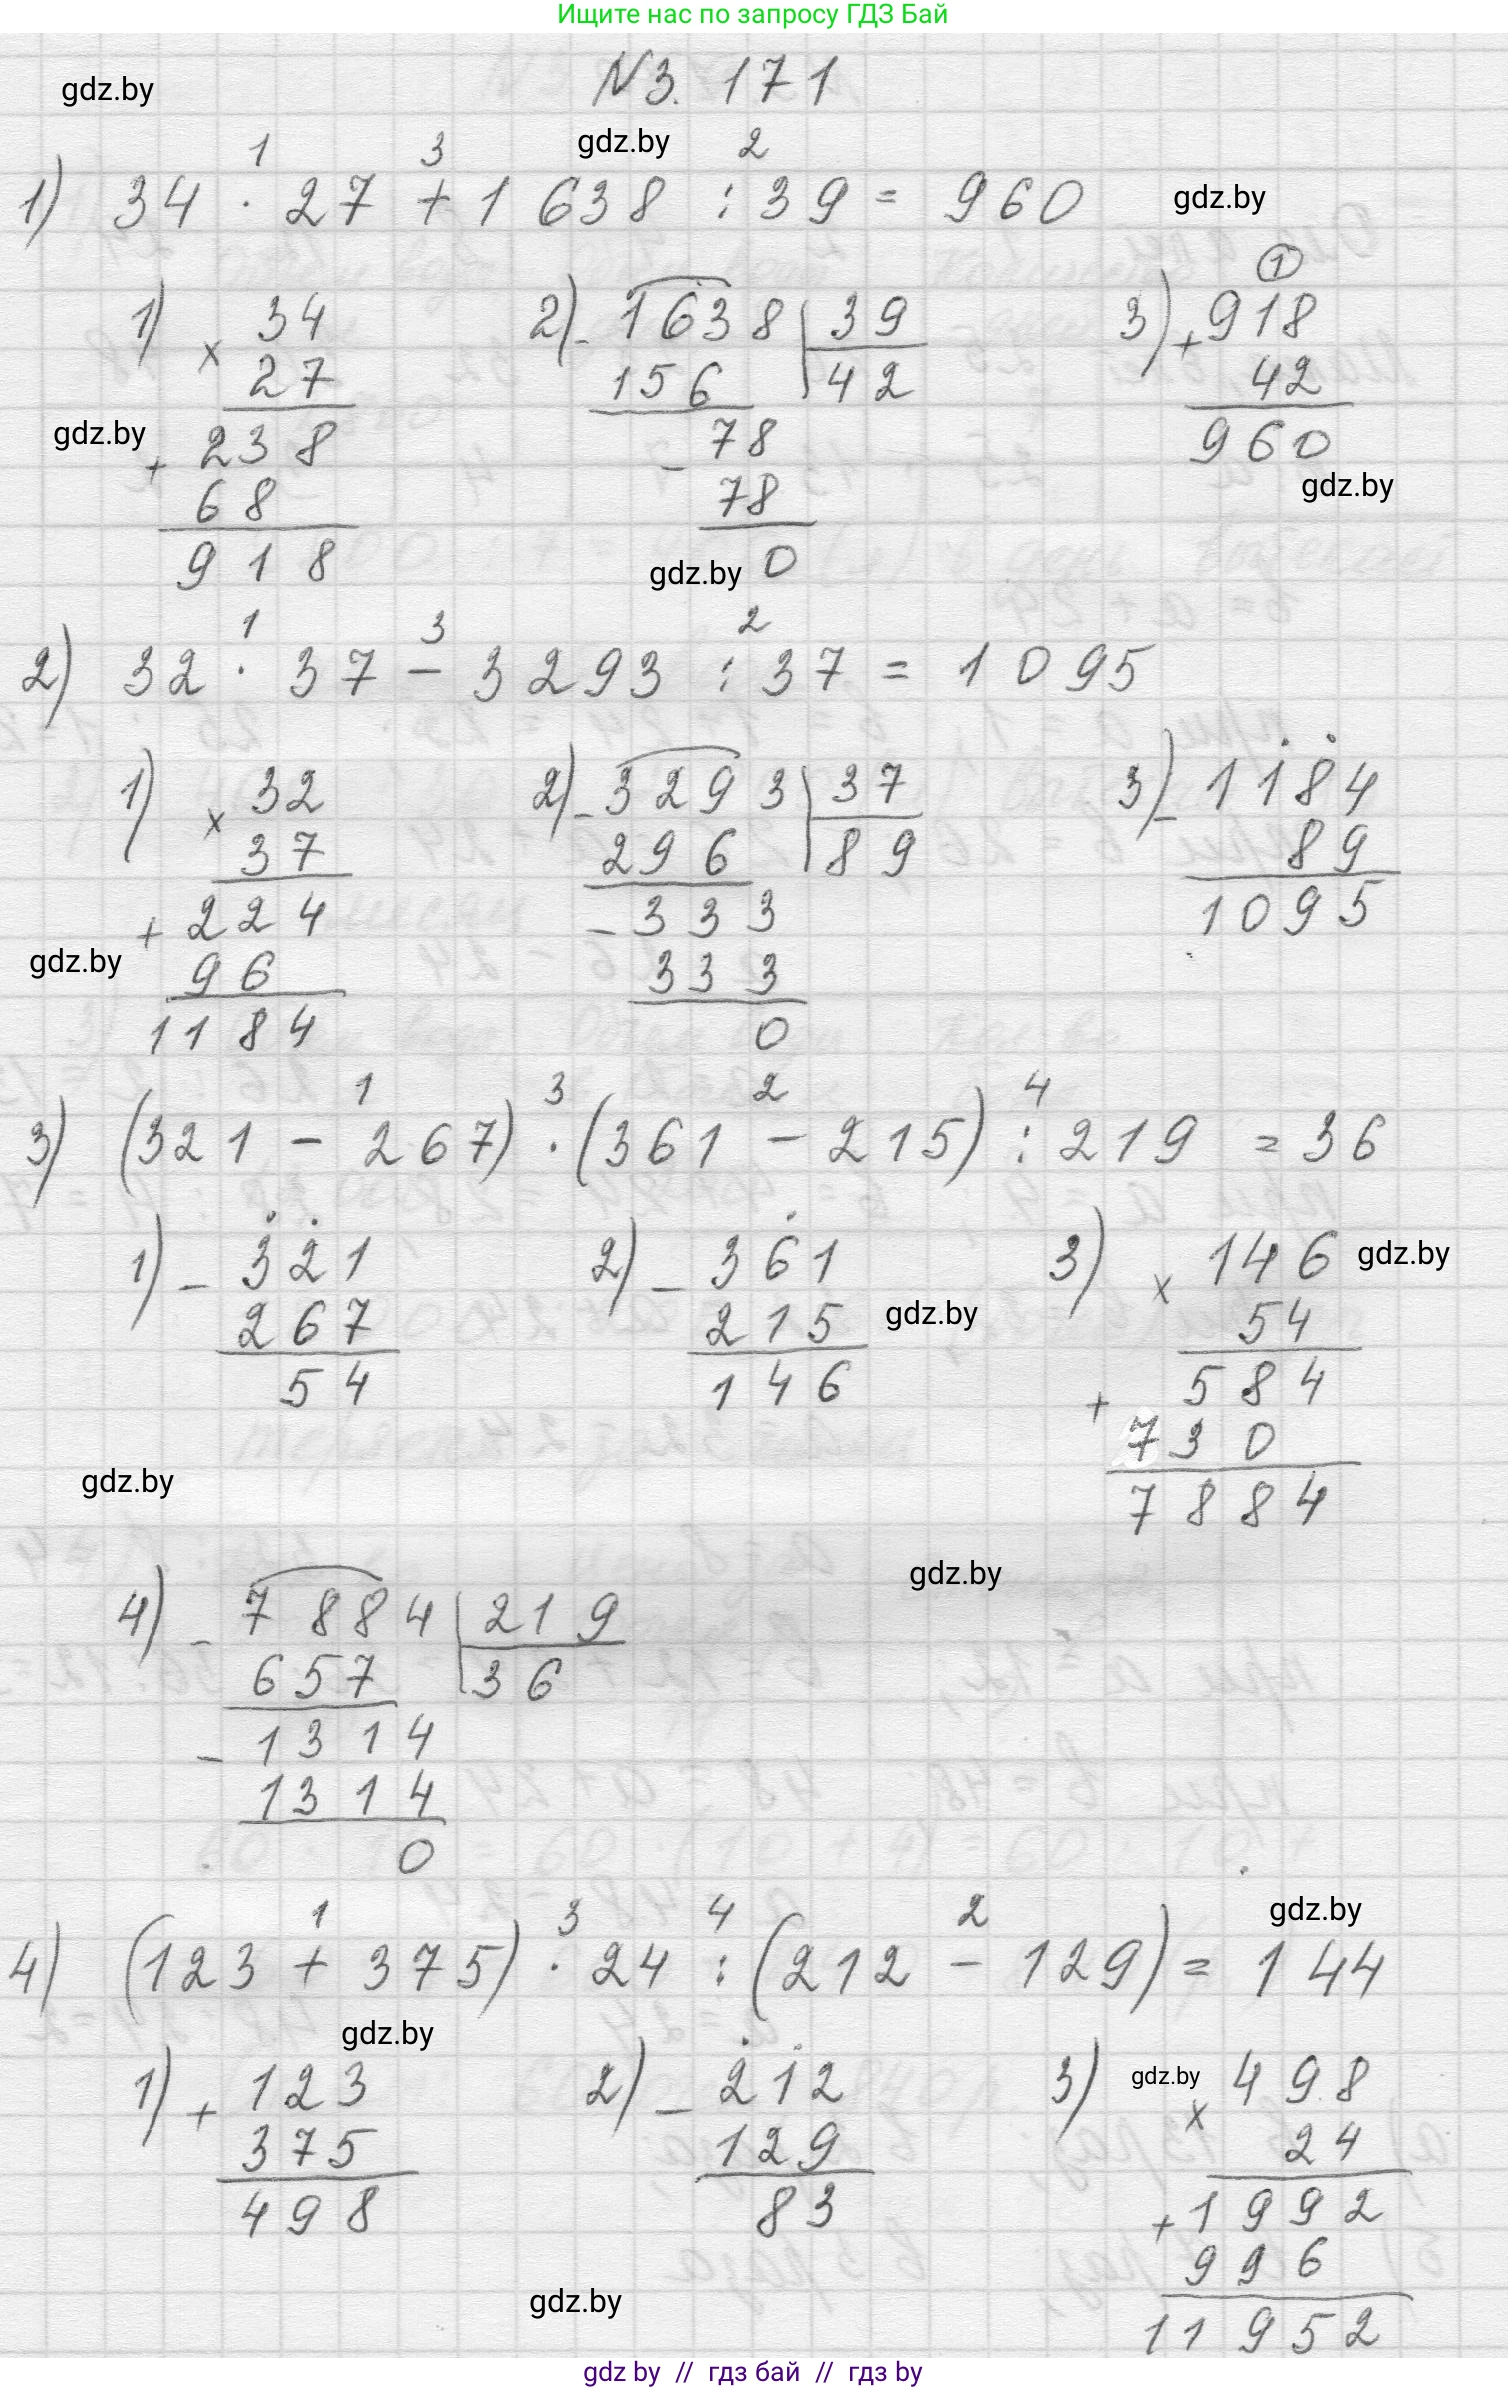 Ищите нас по запросу ГДЗ Бай
N3. 171
gdz.by
gdz.by
1 3 2
1) 34 · 27 + 1 638 : 39 = 960
gdz.by
1) × 34
27
+ 238
68
918
2) - 1638 | 39
156 | 42
- 78
78
0
3) ①
+ 918
42
960
gdz.by
gdz.by
gdz.by
1 3 2
2) 32 · 37 - 3293 : 37 = 1095
1) × 32
37
+ 224
96
1184
2) - 3293 | 37
296 | 89
- 333
333
0
3) - 1184
89
1095
gdz.by
1 3 2 4
3) (321 - 267) · (361 - 215) : 219 = 36
1) - 321
267
54
2) - 361
215
146
3) × 146
54
+ 584
730
7884
gdz.by
gdz.by
gdz.by
gdz.by
4) - 7884 | 219
657 | 36
- 1314
1314
0
gdz.by
1 3 4 2
4) (123 + 375) · 24 : (212 - 129) = 144
gdz.by
1) + 123
375
498
2) - 212
129
83
3) gdz.by
× 498
24
+ 1992
996
11952
gdz.by
gdz by // гдз бай // гдз by